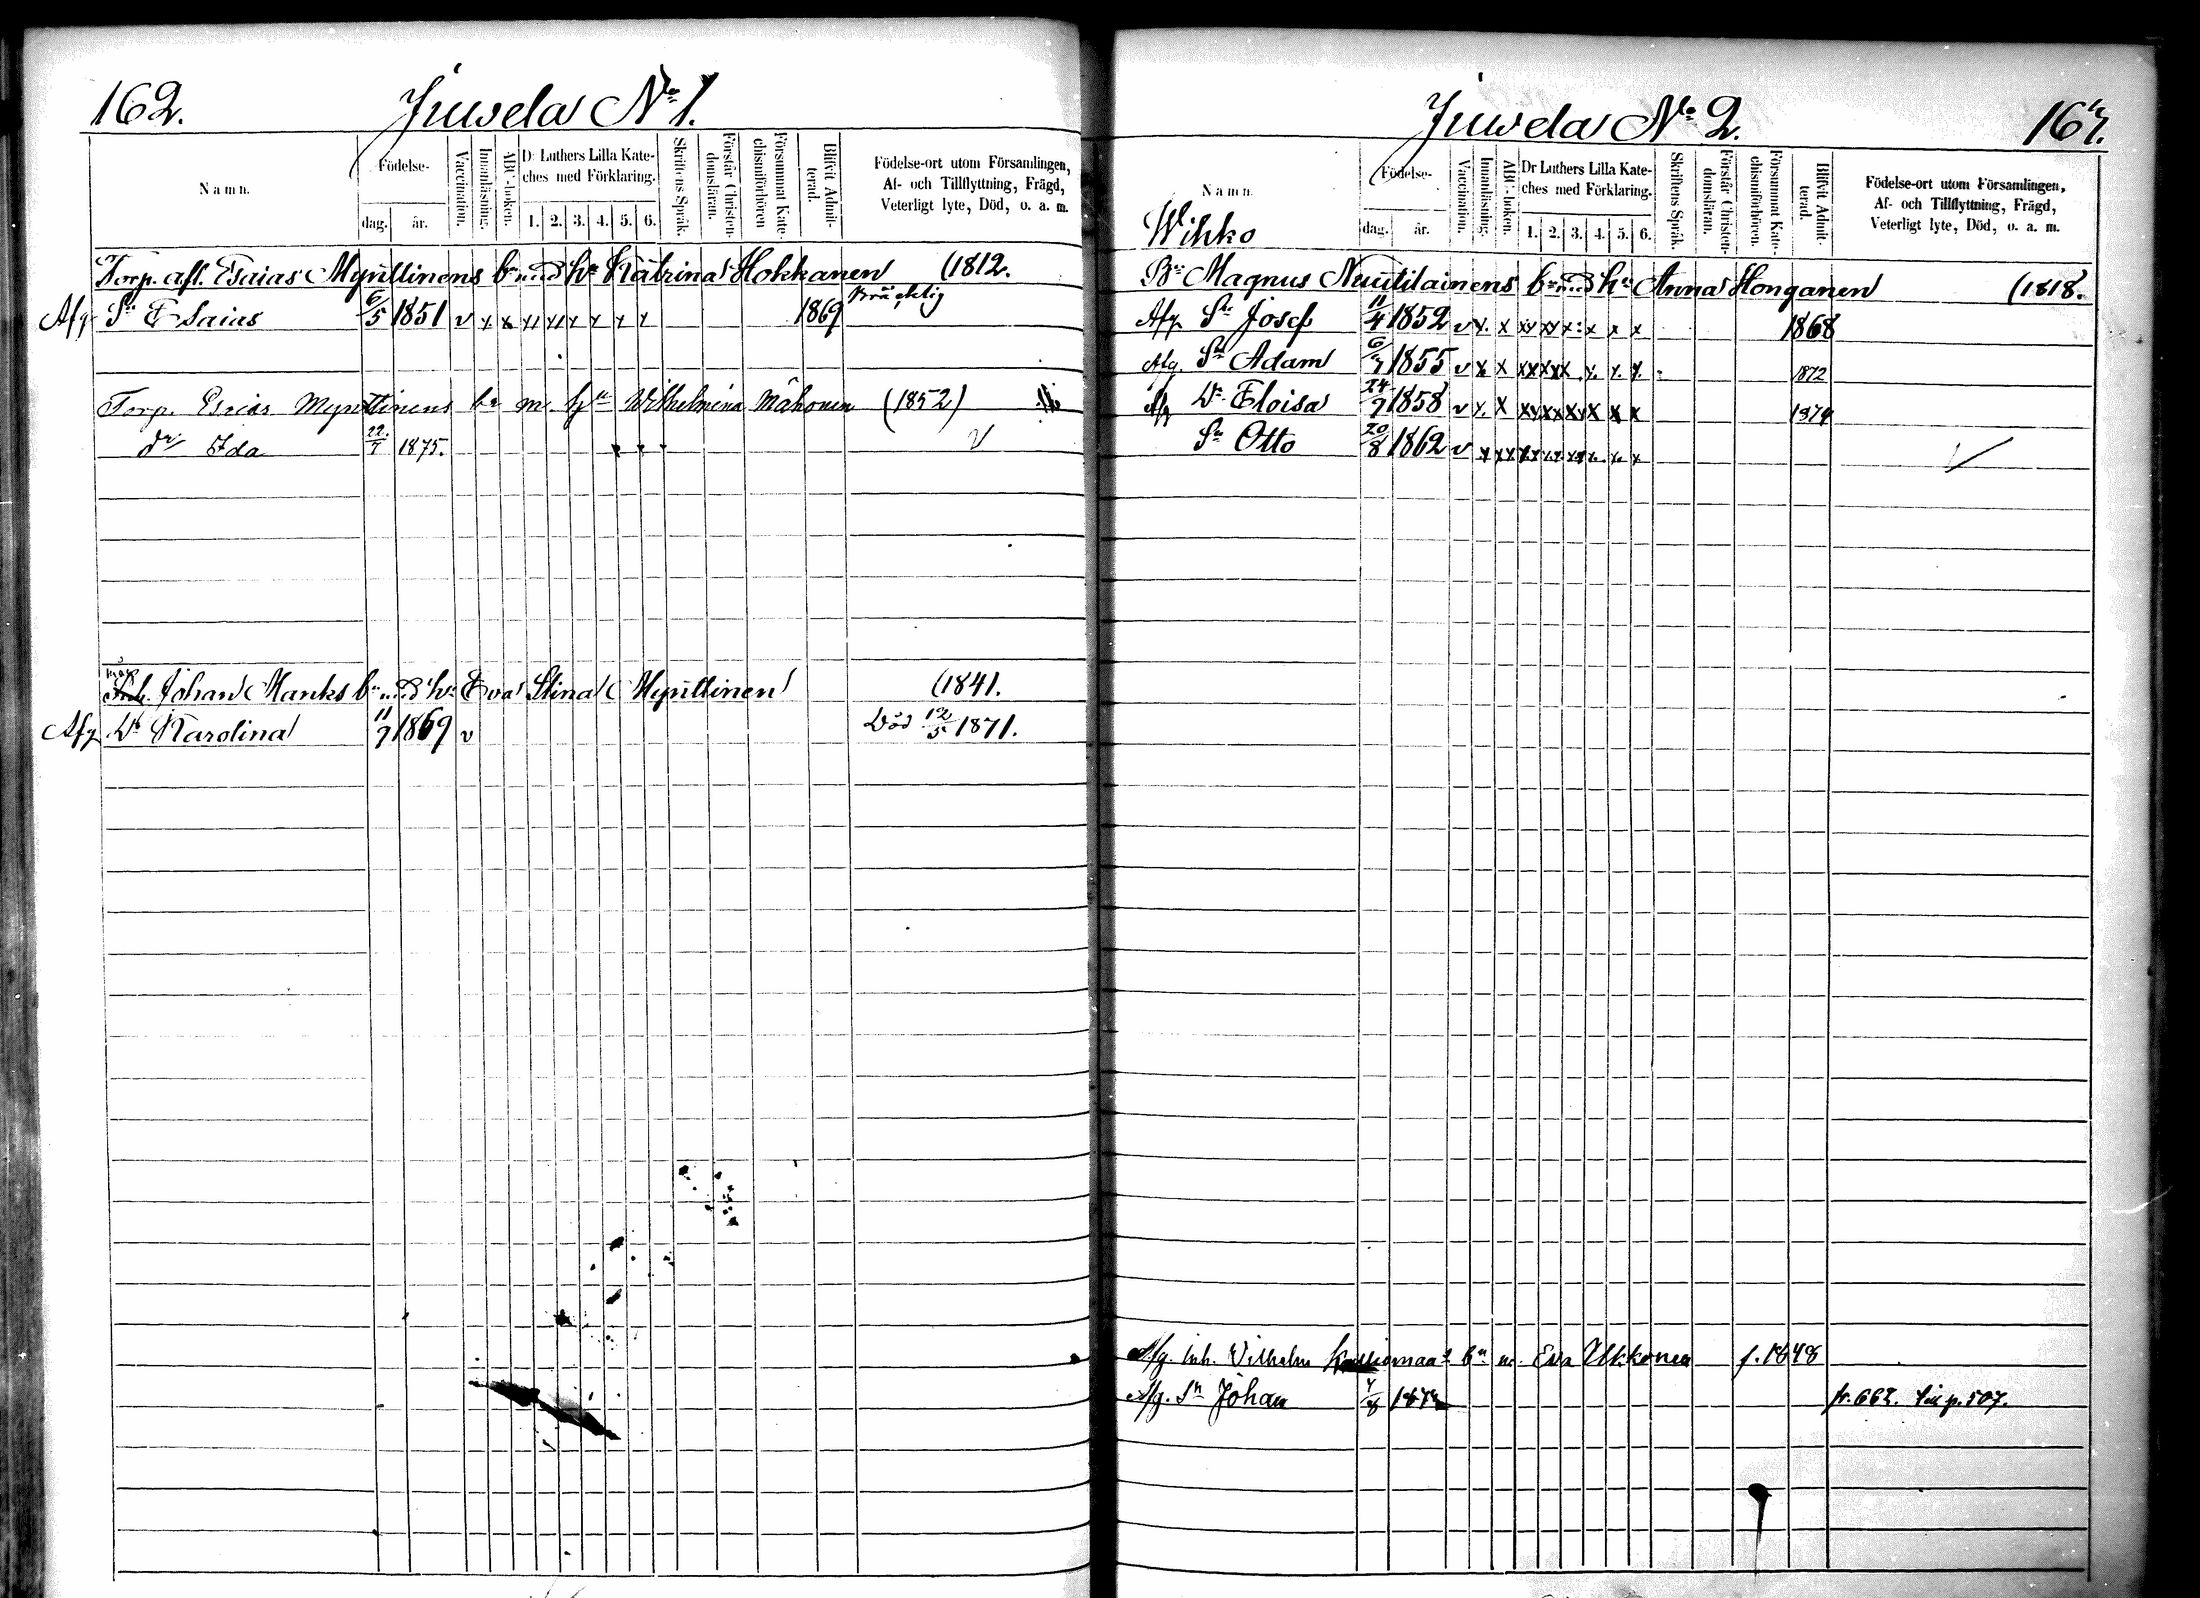 162.
Juvela No 1.
Namn.
Födelse-
dag.
år.
Vaccination.
Innanläsning.
ABC-boken.
Dr Luthers Lilla Kate-
ches med Förklaring.
1. 2. 3. 4. 5. 6.
Skriftens Språk.
Förstår Christen-
domsläran.
Försummat Kate-
chismiförhören
Blifvit Admit-
terad.
Födelse-ort utom Församlingen,
Af- och Tillflyttning, Frägd,
Veterligt lyte, Död, o. a. m.
Torp. afl. Esaias Mynttinens bn m. hu Katrina Hokkanen (1812.
Afg Sn Esaias 6/5 1851 v x x x x x x x x 1869
Torp. Esaias Mynttinens bn m. hu Wilhelmina Mähönen (1852)
dr Ida 22/7 1875. v
Inh. Johan Manks bn hu Eva Stina Mynttinen (1841.
Afg Dr Karolina 11/7 1869 v Död 12/5 1871.
Juvela No 2.
163.
Namn.
Wihko
Födelse-
dag.
år.
Vaccination.
Innanläsning.
ABC-boken.
Dr Luthers Lilla Kate-
ches med Förklaring.
1. 2. 3. 4. 5. 6.
Skriftens Språk.
Förstår Christen-
domsläran.
Försummat Kate-
chismiförhören.
Blifvit Admit-
terad.
Födelse-ort utom Församlingen,
Af- och Tillflyttning, Frägd,
Veterligt lyte, Död, o. a. m.
Bn Magnus Nuutilainens bn hu Anna Honganen (1818.
Afg Sn Josef 11/4 1852 v x x xx xx x x x x 1868
Afg. Sn Adam 1855 v x x xx xx x x x x 1872
Afg Dr Eloisa 24/9 1858 v x x xx xx xx x x x 1874
Sn Otto 20/8 1862 v x xx xx xx xx x x x v
Afg. inh. Vilhelm bn m. Eva Ukkonen f. 1848
Afg. Sn Johan fr. 662. till p. 507.